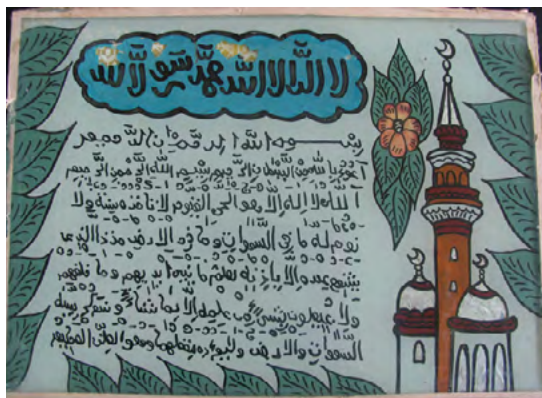 لا إله إلا الله محمد رسول الله
بسم الله الرحمن الرحيم
أعوذ بالله من الشيطان الرجيم بسم الله الرحمن الرحيم
الله لا إله إلا هو الحي القيوم لا تأخذه سنة ولا
نوم له ما في السموات وما في الارض من ذا الذي
يشفع عنده الا بإذنه يعلم ما بين ايديهم وما خلفهم
ولا يحيطون بشيء من علمه الا بما شاء وسع كرسيه
السموات والارض ولا يؤده حفظهما وهو العلي العظيم